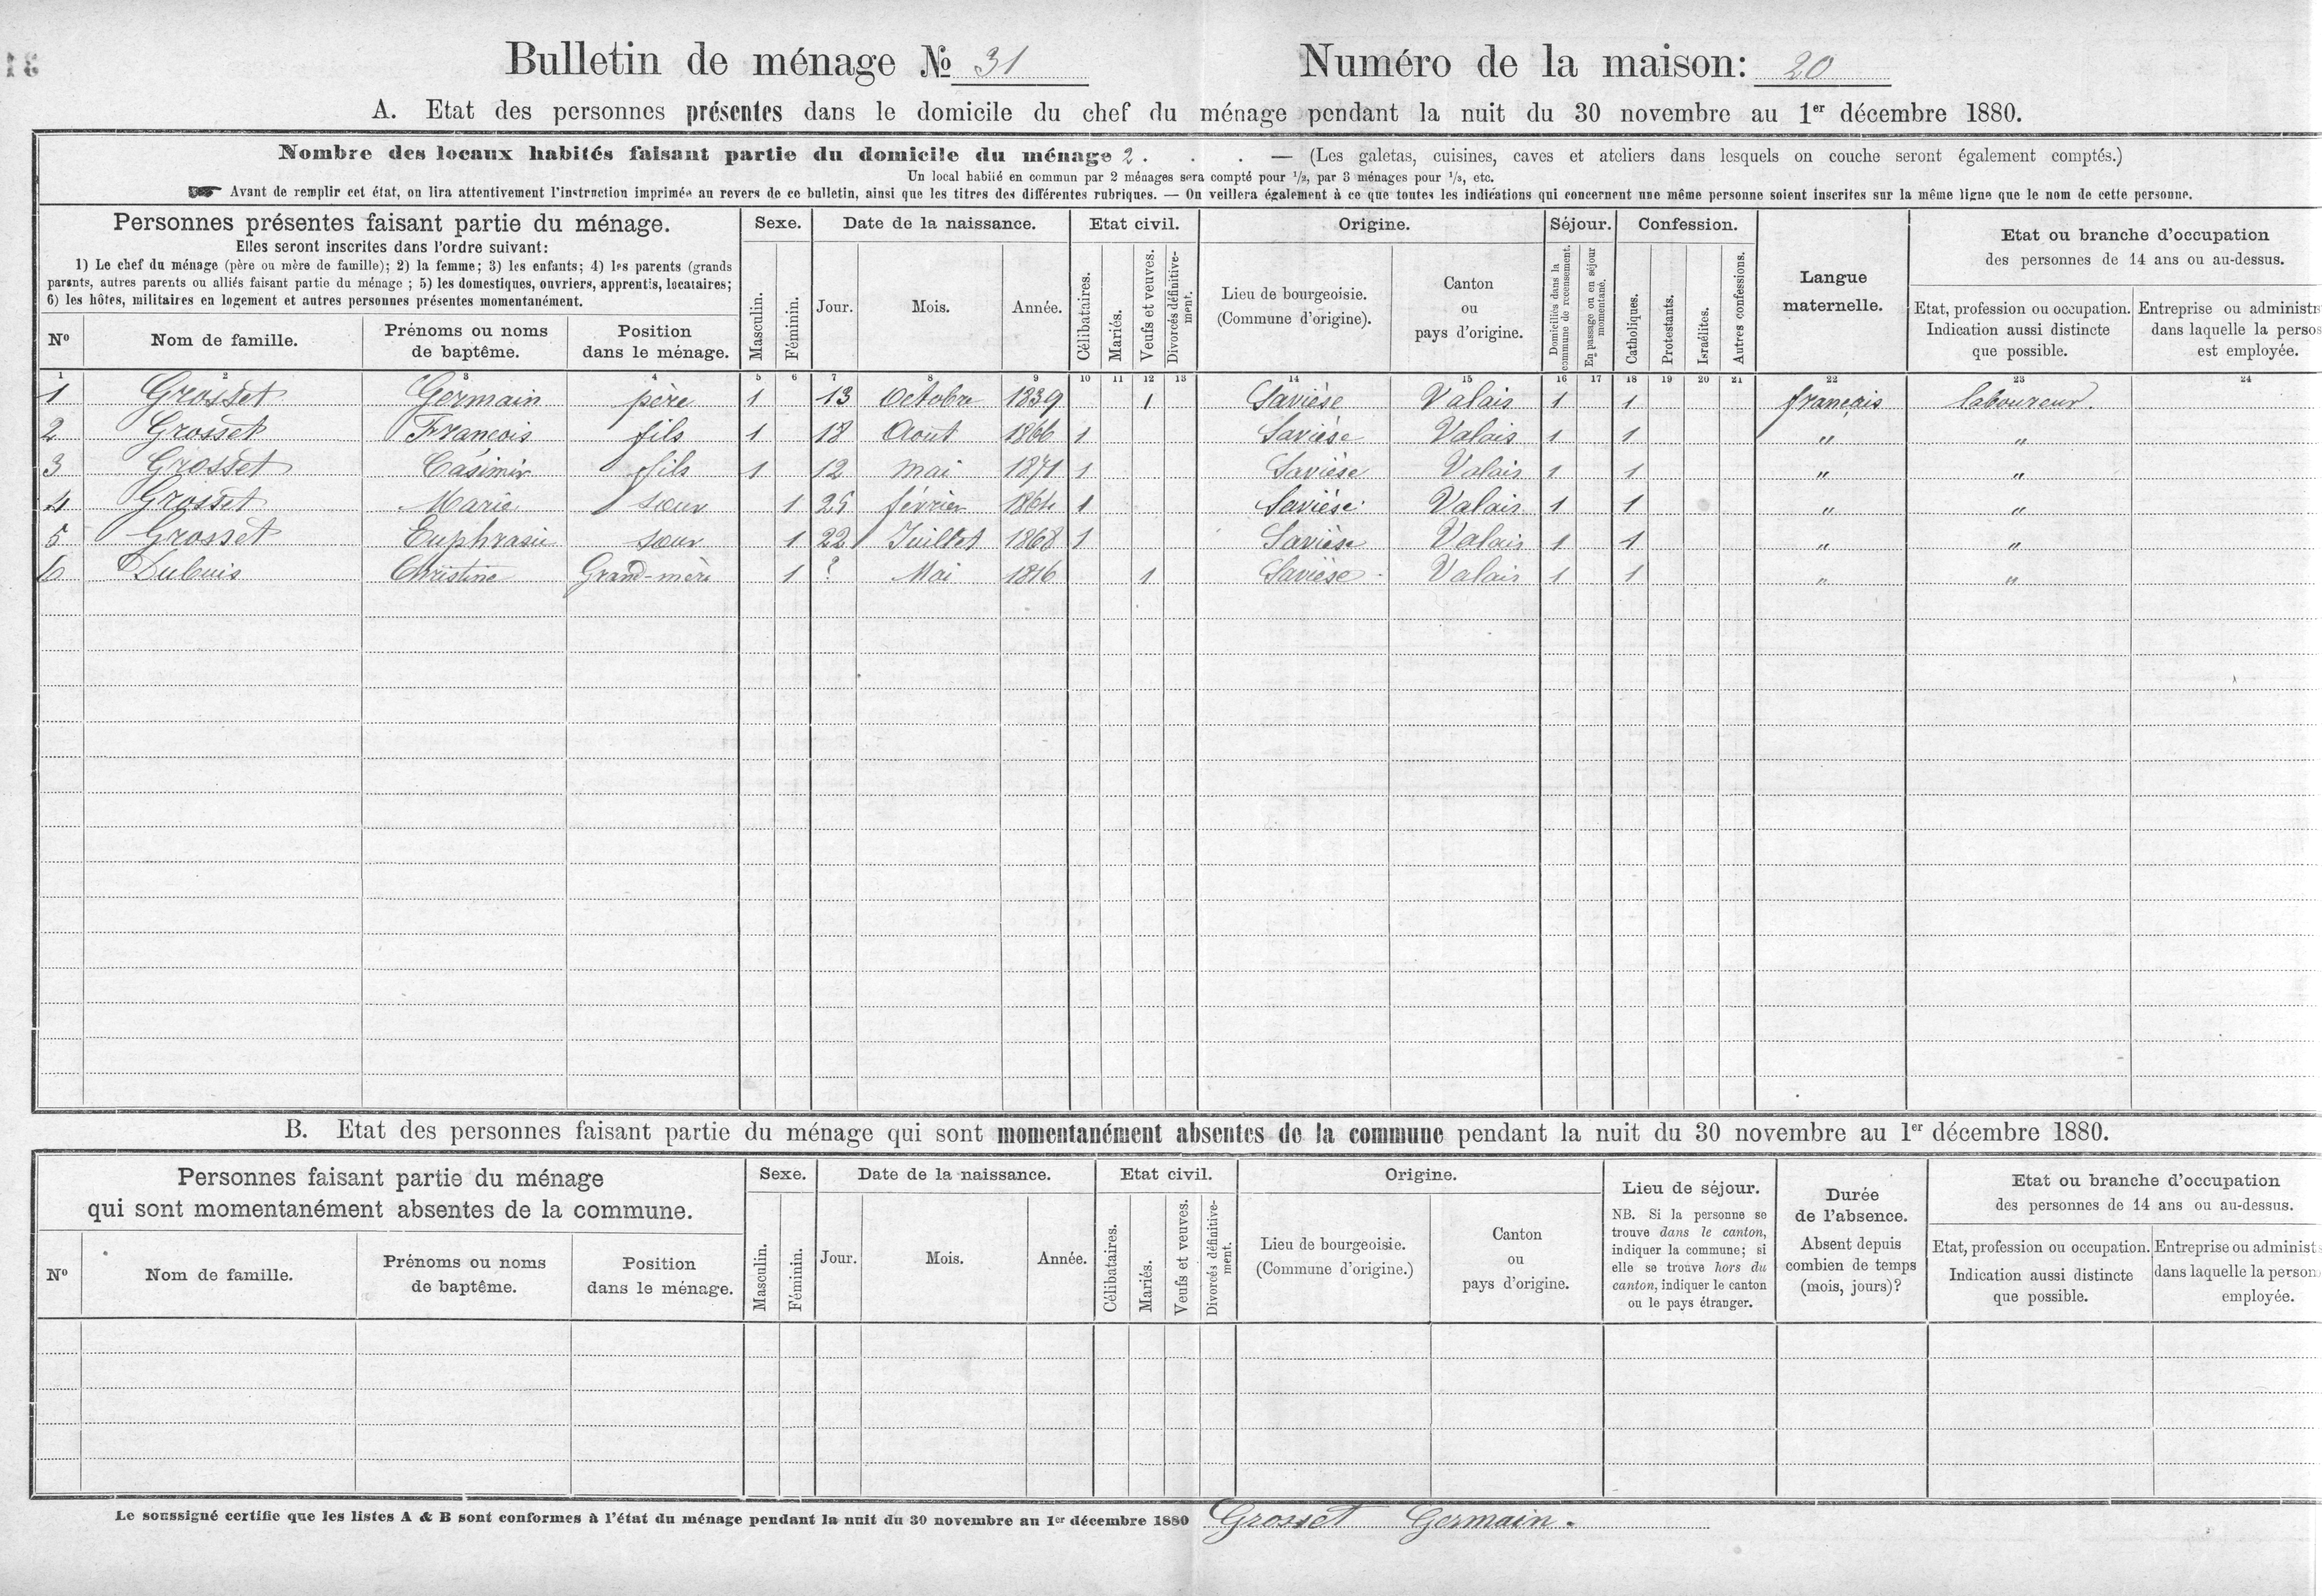 Bulletin de ménage № 31
Numéro de la maison: 20
A. Etat des personnes présentes dans le domicile du chef du ménage pendant la nuit du 30 novembre au 1er décembre 1880.
Nombre des locaux habités faisant partie du domicile du ménage 2 . . . — (Les galetas, cuisines, caves et ateliers dans lesquels on couche seront également comptés.)
Un local habité en commun par 2 ménages sera compté pour 1/2, par 3 ménages pour 1/3, etc.
Avant de remplir cet état, on lira attentivement l'instruction imprimée au revers de ce bulletin, ainsi que les titres des différentes rubriques. — On veillera également à ce que toutes les indications qui concernent une même personne soient inscrites sur la même ligne que le nom de cette personne.
Personnes présentes faisant partie du ménage.
Elles seront inscrites dans l'ordre suivant:
1) Le chef du ménage (père ou mère de famille); 2) la femme; 3) les enfants; 4) les parents (grands
parents, autres parents ou alliés faisant partie du ménage ; 5) les domestiques, ouvriers, apprentis, locataires;
6) les hôtes, militaires en logement et autres personnes présentes momentanément.
Nº
Nom de famille.
Prénoms ou noms
de baptême.
Position
dans le ménage.
Sexe.
Masculin.
Féminin.
Date de la naissance.
Jour.
Mois.
Année.
Etat civil.
Célibataires.
Mariés.
Veufs et veuves.
Divorcés définitive-
ment.
Origine.
Lieu de bourgeoisie.
(Commune d'origine).
Canton
ou
pays d'origine.
Séjour.
Domiciliés dans la
commune de recensement.
En passage ou en séjour
momentané.
Confession.
Catholiques.
Protestants.
Israélites.
Autres confessions.
Langue
maternelle.
Etat ou branche d'occupation
des personnes de 14 ans ou au-dessus.
Etat, profession ou occupation.
Indication aussi distincte
que possible.
Entreprise ou administr
dans laquelle la perso
est employée.
1 2 3 4 5 6 7 8 9 10 11 12 13 14 15 16 17 18 19 20 21 22 23 24
1 Grosset Germain père 1 13 Octobre 1839 1 Savièse Valais 1 1 français laboureur.
2 Grosset François fils 1 18 Aout 1866 1 Savièse Valais 1 1 " "
3 Grosset Casimir fils 1 12 Mai 1871 1 Savièse Valais 1 1 " "
4 Grosset Marie sœur 1 25 février 1864 1 Savièse Valais 1 1 " "
5 Grosset Euphrasie sœur 1 22 Juillet 1868 1 Savièse Valais 1 1 " "
6 Dubuis Christine Grand-mère 1 ? Mai 1816 1 Savièse Valais 1 1 " "
B. Etat des personnes faisant partie du ménage qui sont momentanément absentes de la commune pendant la nuit du 30 novembre au 1er décembre 1880.
Personnes faisant partie du ménage
qui sont momentanément absentes de la commune.
Nº
Nom de famille.
Prénoms ou noms
de baptême.
Position
dans le ménage.
Sexe.
Masculin.
Féminin.
Date de la naissance.
Jour.
Mois.
Année.
Etat civil.
Célibataires.
Mariés.
Veufs et veuves.
Divorcés définitive-
ment.
Origine.
Lieu de bourgeoisie.
(Commune d'origine.)
Canton
ou
pays d'origine.
Lieu de séjour.
NB. Si la personne se
trouve dans le canton,
indiquer la commune; si
elle se trouve hors du
canton, indiquer le canton
ou le pays étranger.
Durée
de l'absence.
Absent depuis
combien de temps
(mois, jours)?
Etat ou branche d'occupation
des personnes de 14 ans ou au-dessus.
Etat, profession ou occupation.
Indication aussi distincte
que possible.
Entreprise ou administ
dans laquelle la person
employée.
Le soussigné certifie que les listes A & B sont conformes à l'état du ménage pendant la nuit du 30 novembre au 1er décembre 1880 Grosset Germain.